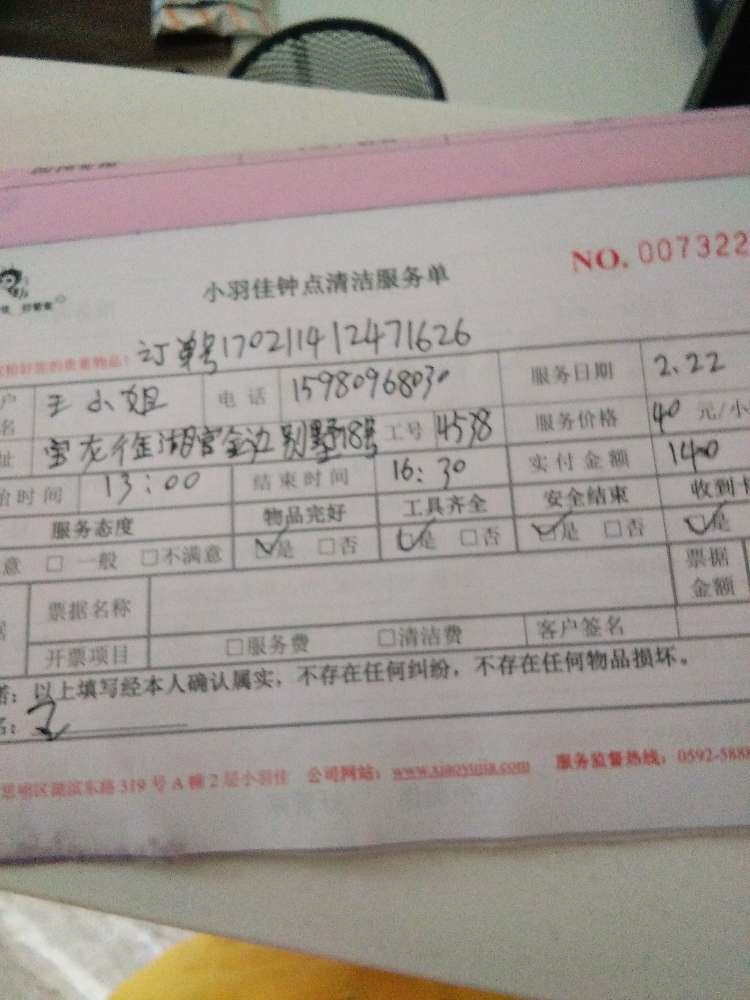 小羽佳钟点清洁服务单 NO. 007322
订单号170211412471626
王小姐 电话 15980968030 服务日期 2.22
工号 4538 服务价格 40 元/小
时间 13:00 结束时间 16:30 实付金额 140
服务态度 物品完好 工具齐全 安全结束 收到
意 □ 一般 □不满意 ☑是 □否 ☑是 □否 ☑是 □否 ☑是
票据名称 票据金额
开票项目 □服务费 □清洁费 客户签名
以上填写经本人确认属实,不存在任何纠纷,不存在任何物品损坏。
思明区湖滨东路319号A幢2层小羽佳 公司网站: www.xiaoyujia.com 服务监督热线: 0592-588